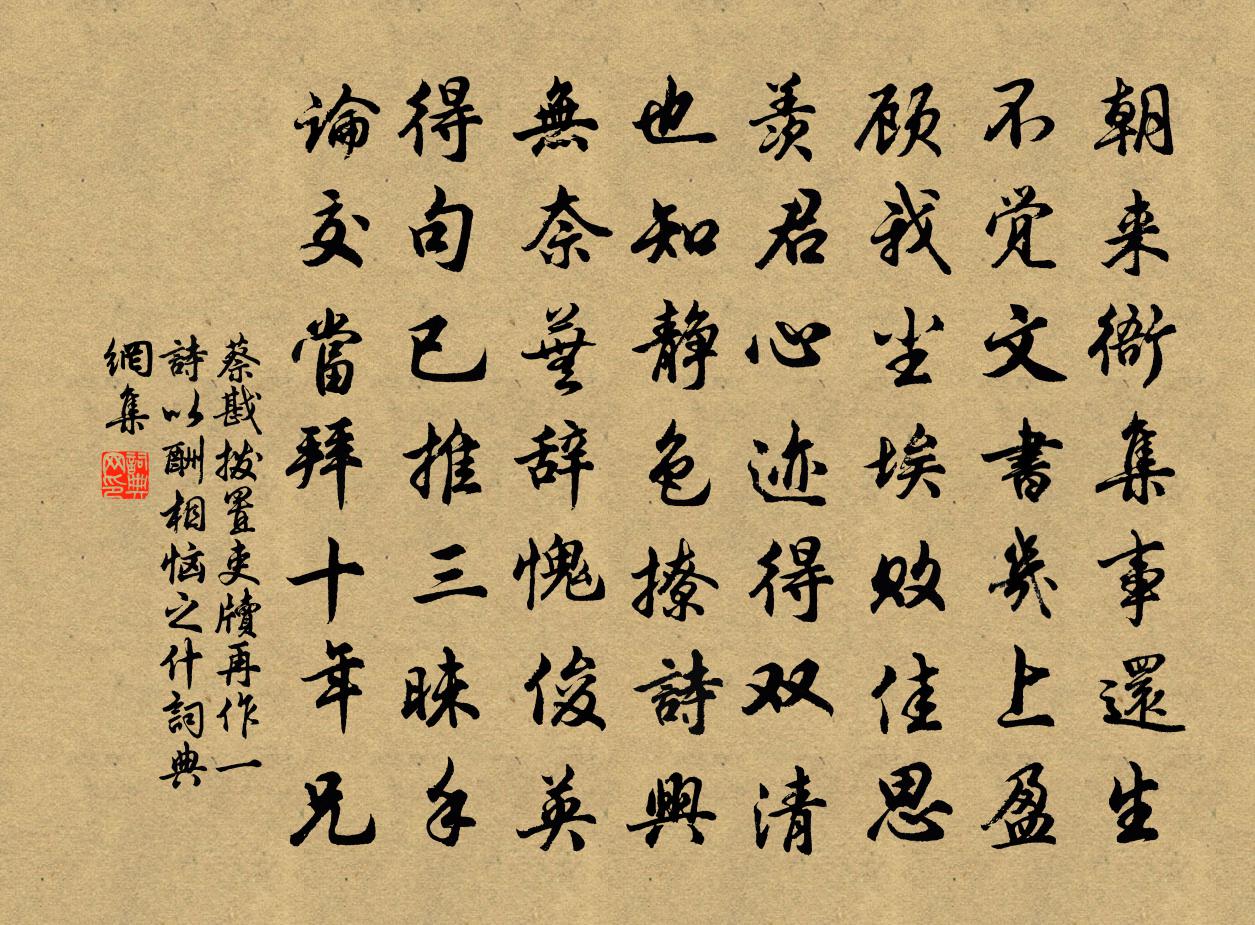 朝来衙集事還生
不觉文書几上盈
顾我尘埃败佳思
羡君心迹得双清
也知静色撩詩興
無奈蕪辞愧俊英
得句已推三昧手
論交當拜十年兄
蔡戡拨置吏牘再作一
詩以酬相恼之什詞典
網集
詞典网印